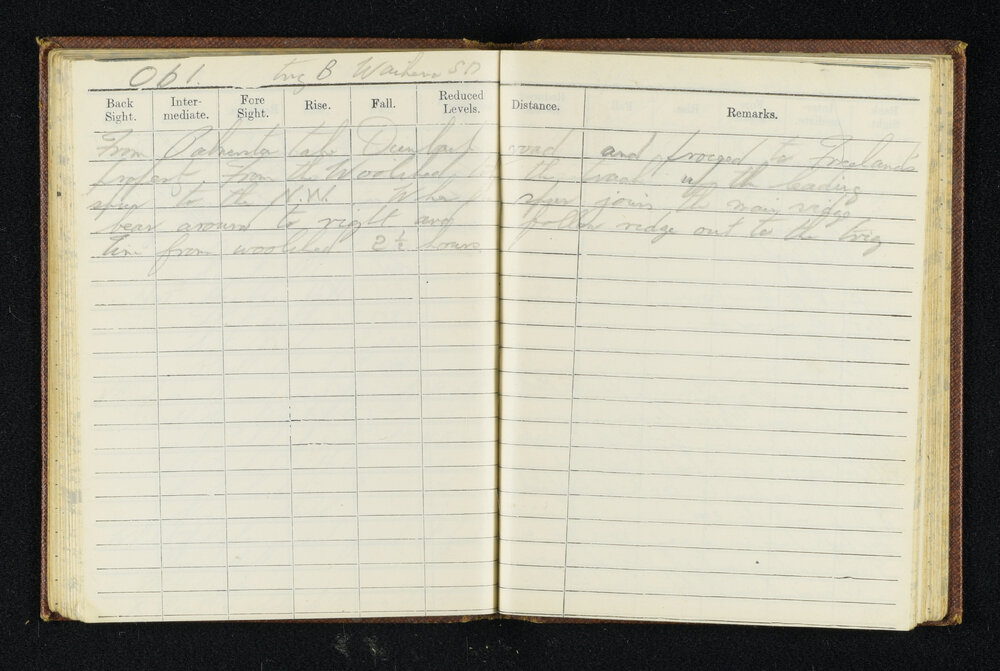 Ob 1. trig B Waihemo S.D
Back Sight. Inter-mediate. Fore Sight. Rise. Fall. Reduced Levels. Distance. Remarks.
From take road and proceed to Freelands
from the Woolshed the track up the leading
spur to the N.W. spur joins the main ridge
bear around to right and follow ridge out to the trig
Time from woolshed 2½ hours